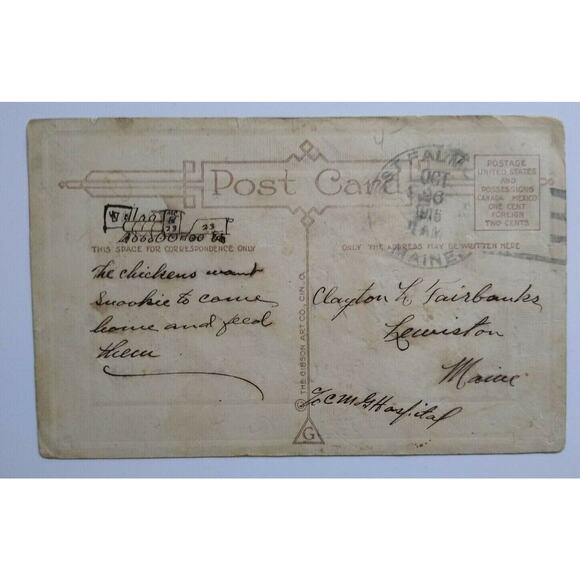 Post Card
WEST FALMO
OCT
26
1915
AM
MAINE
POSTAGE
UNITED STATES
AND
POSSESSIONS
CANADA MEXICO
ONE CENT
FOREIGN
TWO CENTS
23
23
THIS SPACE FOR CORRESPONDENCE ONLY
ONLY THE ADDRESS MAY BE WRITTEN HERE
The chickens want
Snookie to come
home and feed
them
© THE GIBSON ART CO., CIN. O.
G
Clayton L Fairbanks
Lewiston
Maine
℅ C M G Hospital